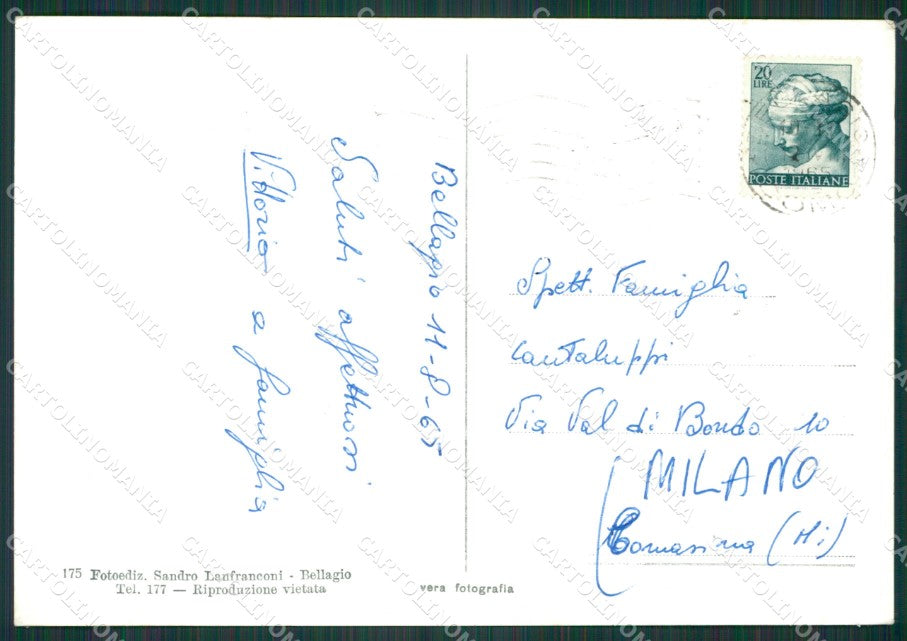 Bellagio 11-8-65
Saluti affettuosi
Vittorio e famiglia
20
LIRE
POSTE ITALIANE
Spett. Famiglia
Cantaluppi
Via Val di Bondo 10
MILANO
(Comasina (Mi)
175 Fotoediz. Sandro Lanfranconi - Bellagio
Tel. 177 — Riproduzione vietata
vera fotografia
CARTOLINOMANIA